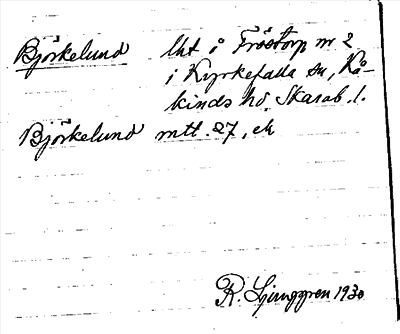 Björkelund lht å Fröstorp nr 2
i Kyrkefalla sn, Kå-
kinds hd, Skarab. l.
Björkelund mtl. 27, ek
R. Ljunggren 1930